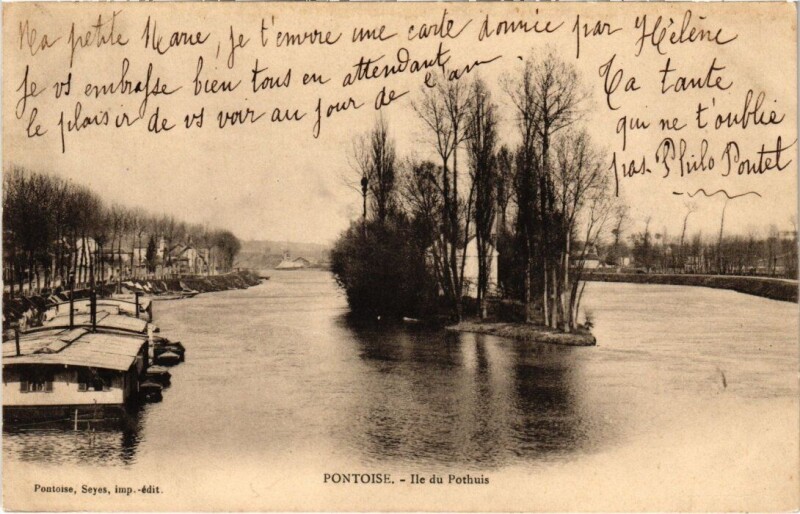 Ma petite Marie, je t'envoie une carte donnée par Hélène
Je vs embrasse bien tous en attendant
le plaisir de vs voir au jour de l'an
Ta tante
qui ne t'oublie
pas. Philo Pontet
PONTOISE. - Ile du Pothuis
Pontoise, Seyes, imp.-édit.